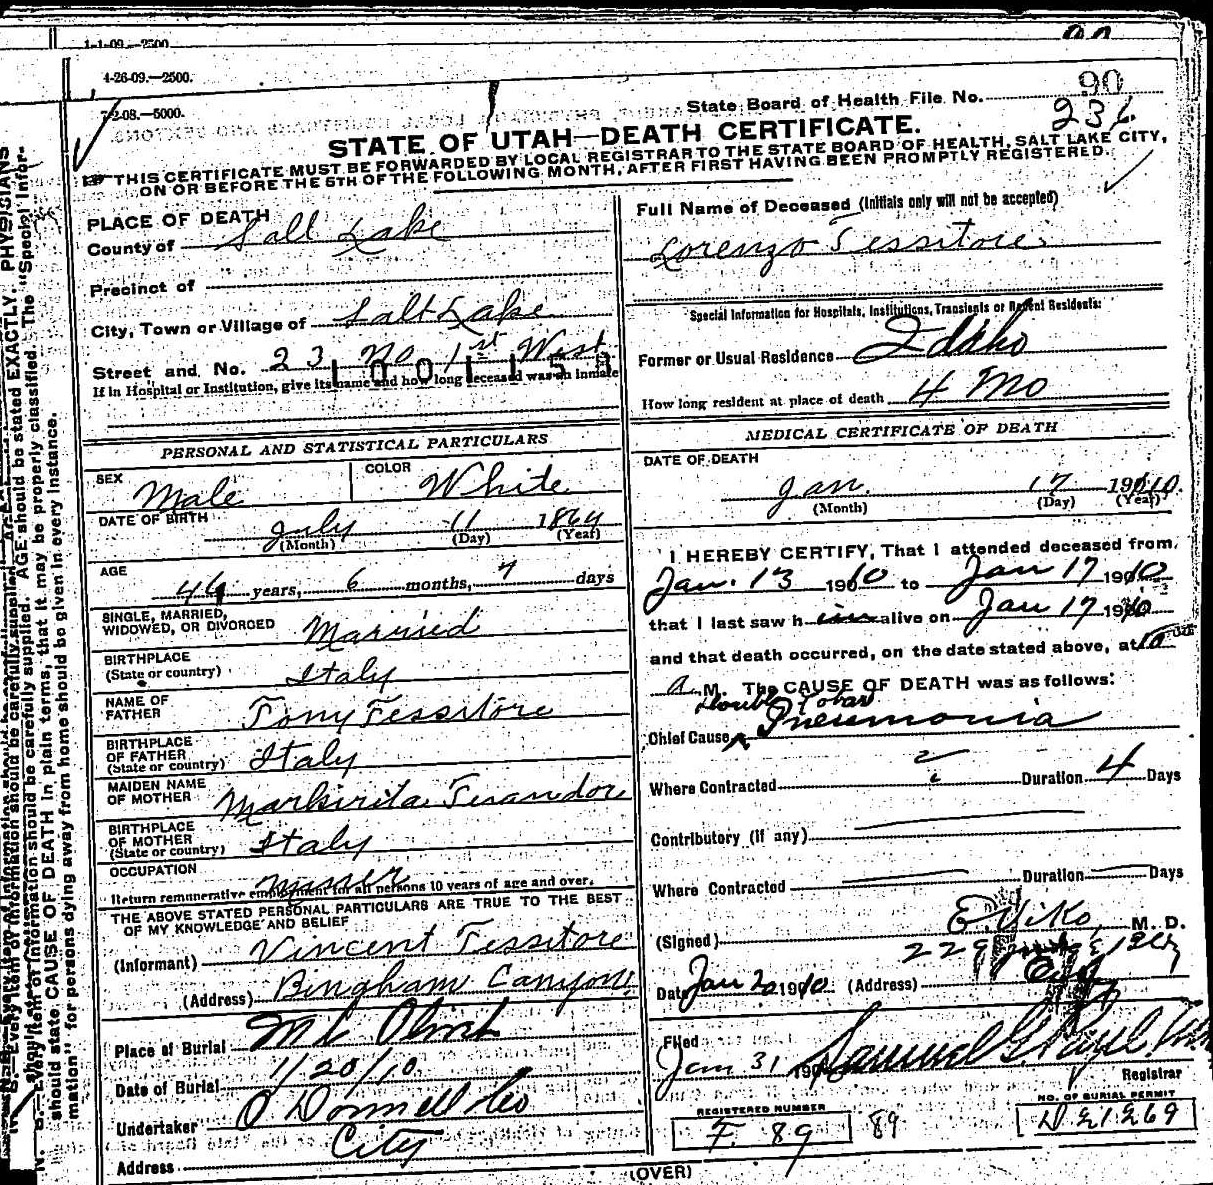 1-1-09.—2500
4-26-09.—2500.
7-2-08.—5000.
State Board of Health File No. 90
236
STATE OF UTAH—DEATH CERTIFICATE.
THIS CERTIFICATE MUST BE FORWARDED BY LOCAL REGISTRAR TO THE STATE BOARD OF HEALTH, SALT LAKE CITY,
ON OR BEFORE THE 5TH OF THE FOLLOWING MONTH, AFTER FIRST HAVING BEEN PROMPTLY REGISTERED.
PLACE OF DEATH
County of Salt Lake
Precinct of
City, Town or Village of Salt Lake
Street and No. 23 No 1st West
1001158
If in Hospital or Institution, give its name and how long deceased was an inmate
PERSONAL AND STATISTICAL PARTICULARS
SEX Male COLOR White
DATE OF BIRTH July 11 1864
(Month) (Day) (Year)
AGE 44 years, 6 months, 7 days
SINGLE, MARRIED,
WIDOWED, OR DIVORCED Married
BIRTHPLACE
(State or country) Italy
NAME OF
FATHER Tony Tessitore
BIRTHPLACE
OF FATHER
(State or country) Italy
MAIDEN NAME
OF MOTHER
BIRTHPLACE
OF MOTHER
(State or country) Italy
OCCUPATION
Return remunerative employment for all persons 10 years of age and over.
THE ABOVE STATED PERSONAL PARTICULARS ARE TRUE TO THE BEST
OF MY KNOWLEDGE AND BELIEF
(Informant) Vincent Tessitore
(Address) Bingham Canyon
Place of Burial Mt Olivet
Date of Burial 1/20/10
Undertaker O Donnell Co
Address City
Full Name of Deceased (Initials only will not be accepted)
Lorenzo Tessitore
Special Information for Hospitals, Institutions, Transients or Recent Residents:
Former or Usual Residence Idaho
How long resident at place of death 4 Mo
MEDICAL CERTIFICATE OF DEATH
DATE OF DEATH
Jan. 17 1910.
(Month) (Day) (Year)
I HEREBY CERTIFY, That I attended deceased from
Jan. 13 1910 to Jan 17 1910
that I last saw him alive on Jan 17 1910
and that death occurred, on the date stated above, at 10
a. M. The CAUSE OF DEATH was as follows:
Double Lobar
Chief Cause Pneumonia
Where Contracted ? Duration 4 Days
Contributory (if any)
Where Contracted Duration Days
(Signed) E. Viko, M. D.
Date Jan 20 1910 (Address)
Filed
Jan 31 190
Registrar
REGISTERED NUMBER
F 89
89
NO. OF BURIAL PERMIT
(OVER)